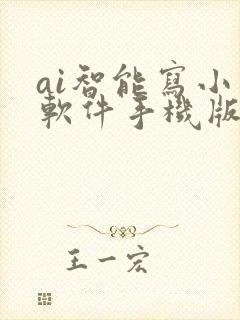 ai智能寫小
軟件手機版
王一宏